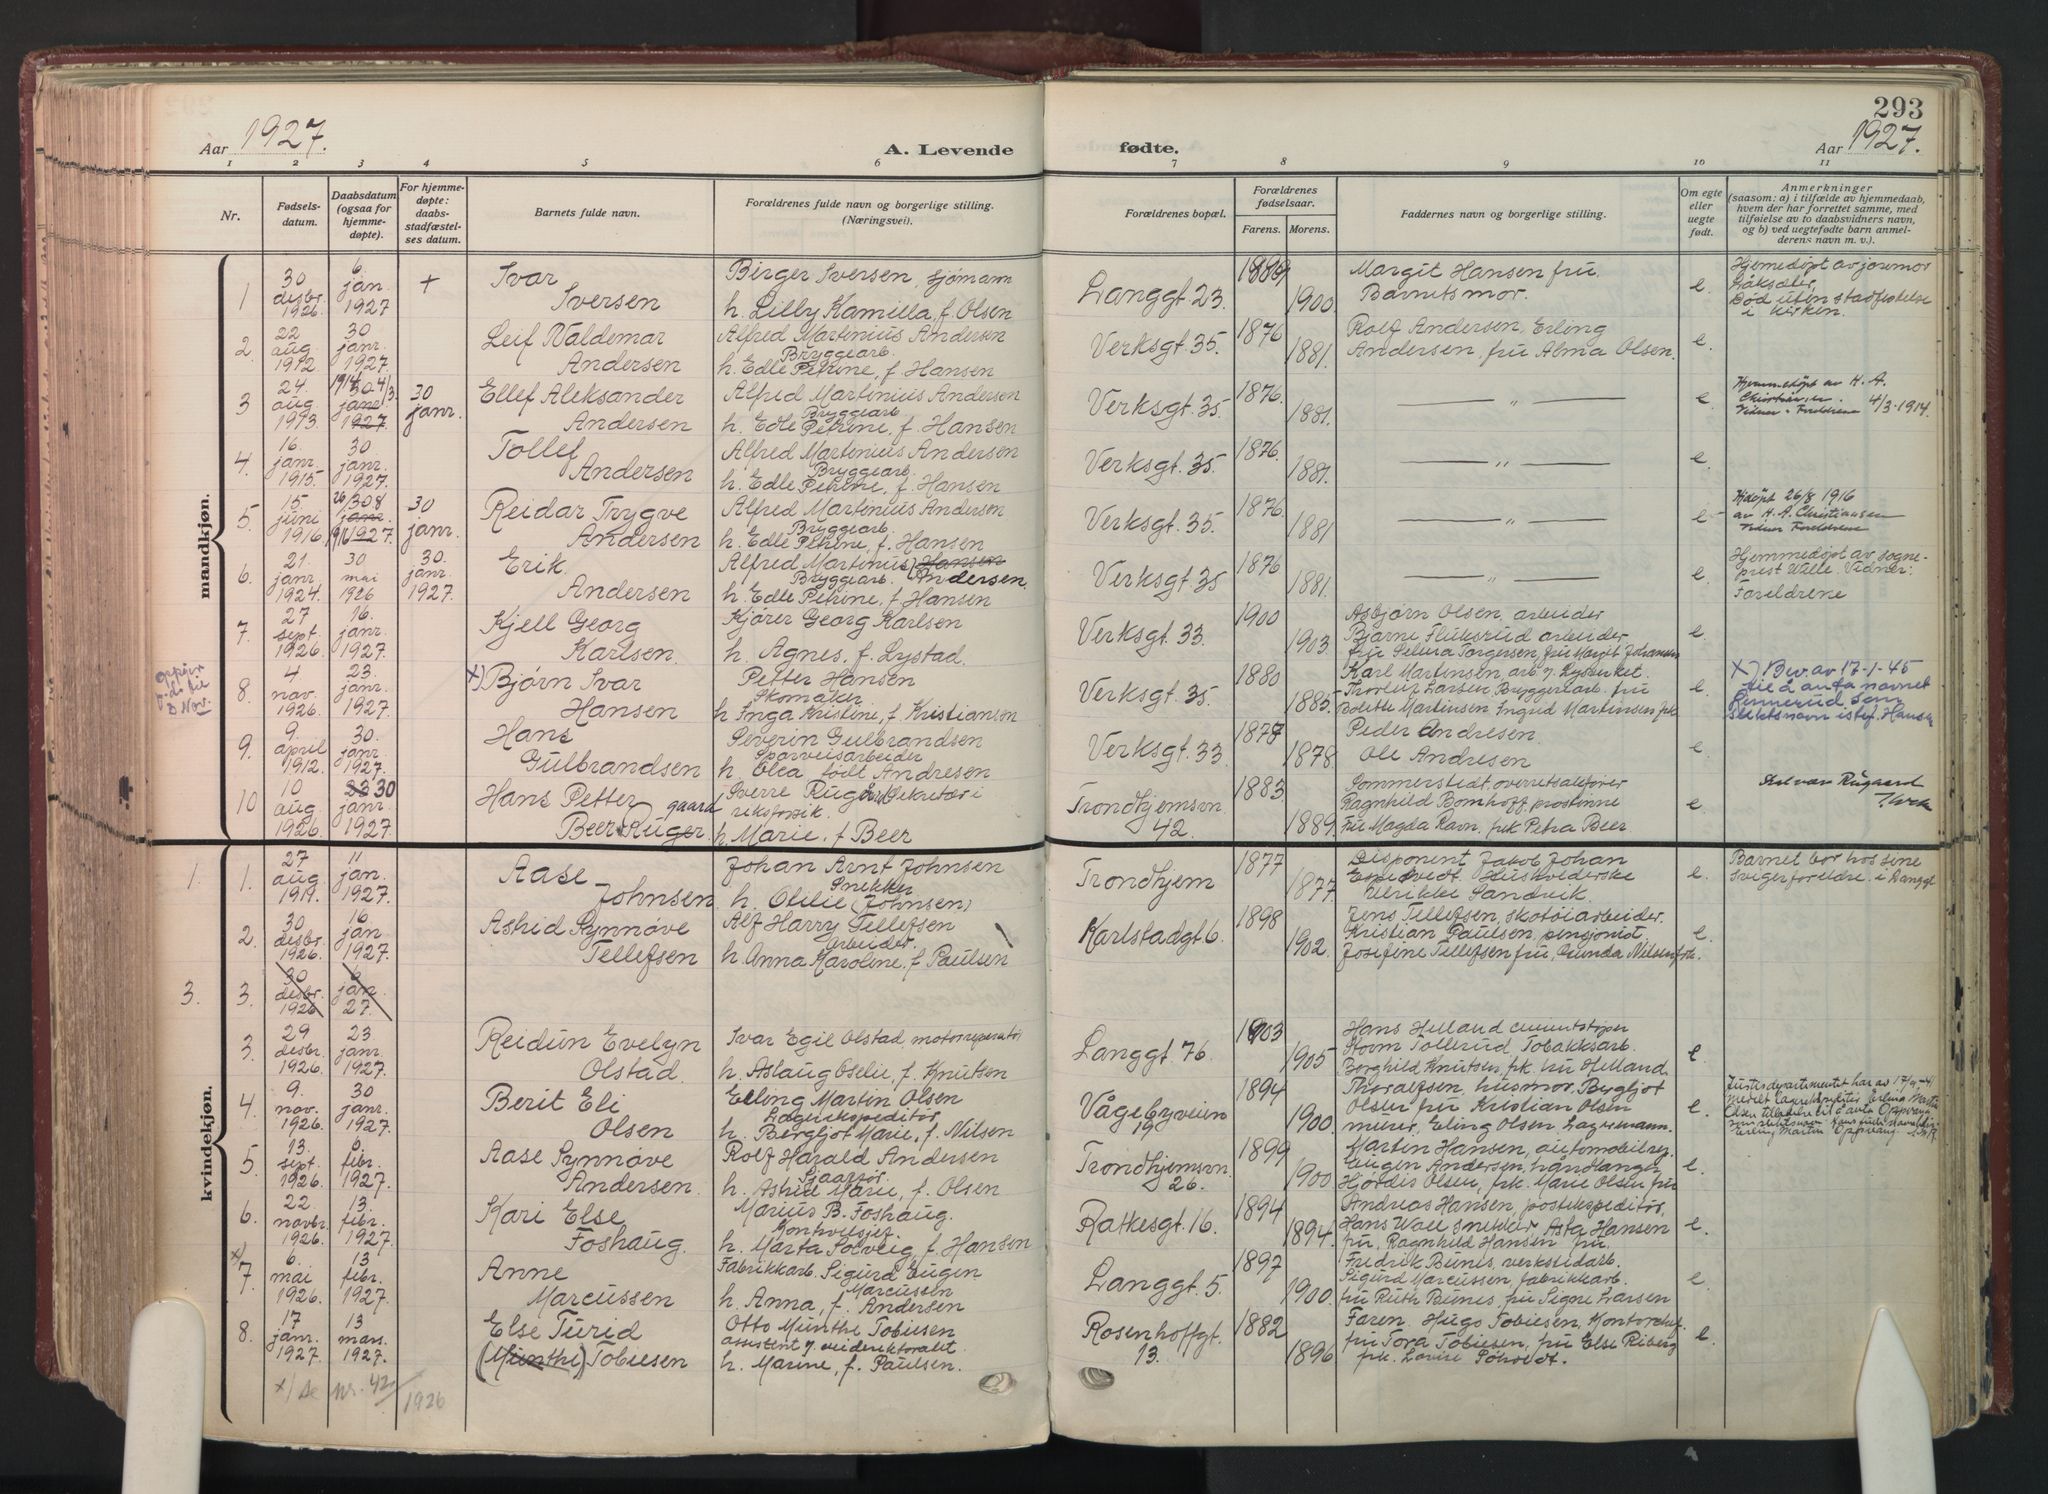 293
Aar 1927.
A. Levende
fødte.
Aar 1927.
1 2 3 4 5 6 7 8 9 10 11
Nr.
Fødsels-
datum.
Daabsdatum
(ogsaa for
hjemme-
døpte).
For hjemme-
døpte:
daabs-
stadfæstel-
ses datum.
Barnets fulde navn.
Forældrenes fulde navn og borgerlige stilling.
(Næringsvei).
Forældrenes bopæl.
Forældrenes
fødselsaar.
Farens. Morens.
Faddernes navn og borgerlige stilling.
Om egte
eller
uegte
født.
Anmerkninger
(saasom: a) i tilfælde av hjemmedaab,
hvem der har forrettet samme, med
tilføielse av to daabsvidners navn,
og b) ved uegtefødte barn anmel-
derens navn m. v.).
mandkjøn.
1 30 desbr. 1926 6. jan. 1927 + Ivar
Iversen
Birger Iversen, sjømann
h. Lilly Kamilla, f. Olsen
Langgt. 23. 1900.
Margit Hansen fru
Barnets mor.
e.
Hjemmedøpt av jormor
Død uten stadfestelse
i kirken.
2. 22 aug. 1912 30 janr. 1927. Leif Valdemar
Andersen
Alfred Martinius Andersen
Bryggearb.
h. Edle Petrine, f. Hansen
Verksgt. 35. 1876 1881.
Rolf Andersen, Erling
Andersen, fru Alma Olsen.
e.
3 24. aug. 1913 1914 30 4/3 jan. 1927. 30 janr. Ellef Aleksander
Andersen
Alfred Martinius Andersen
Bryggearb.
h. Edle Petrine, f. Hansen
Verksgt. 35. 1876. 1881.
— „ —
e.
Hjemmedøpt av H. A.
Christiansen. 4/3-1914.
Vidner: Foreldrene
4. 16. janr. 1915. 30 janr. 1927. Tollef
Andersen
Alfred Martinius Andersen
Bryggearb.
h. Edle Petrine, f. Hansen
Verksgt. 35. 1876. 1881.
— „ —
e.
5. 15. juni 1916 26/8 30 janr. 1916 1927. 30 janr. Reidar Trygve
Andersen
Alfred Martinius Andersen
Bryggearb.
h. Edle Petrine, f. Hansen
Verksgt. 35. 1876. 1881
— „ —
e
Hjdøpt 26/8 1916
av H. A. Christiansen
Vidner Foreldrene
6. 21. janr. 1924. 30 mai 1926 30. janr. 1927. Erik
Andersen
Alfred Martinius Hansen
Bryggearb. Andersen.
h. Edle Petrine, f. Hansen
Verksgt. 35 1876 1881.
— „ —
e.
Hjemmedøpt av sogne-
prest Wille. Vidner:
Foreldrene
7. 27 sept. 1926. 16. janr. 1927. Kjell Georg
Karlsen.
Kjører Georg Karlsen
h. Agnes, f. Lystad.
Verksgt. 33. 1900 1903.
Asbjørn Olsen, arbeider
Bjarne Fluksrud arbeider
fru Selma Torgersen, fru Margit Johansen
e.
8 4 nov. 1926. 23. janr. 1927. x) Bjørn Ivar
Hansen
Petter Hansen
Skomaker
h. Inga Kristine, f. Kristianson
Verksgt. 35. 1880 1885.
Karl Martinsen, arb
Thorleif Larsen Bryggeriarb. fru
Bolette Martinsen Ingrid Martinsen frk
e.
x) Bev. av 17-1-45
til å anta navnet
som
slektsnavn istef. Hansen
9. 9. april 1912. 30. janr. 1927. Hans
Gulbrandsen
Severin Gulbrandsen
Sporveisarbeider
h. Olea født Andresen
Verksgt. 33. 1878.
Peder Andresen.
Ole Andresen
e.
10 10 aug. 1926. 23 30 janr. 1927. Hans Petter
Beer Rüger gaard
Sverre Sekretær i
h. Marie, f Beer
Trondhjemsvn 42. 1883. 1889.
Sommerstedt, overretssakfører
Ragnhild Bomhoff, prostinne
Fru Magda Ravn, frk Petra Beer
e.
kvindekjøn.
1. 1. 27 aug. 1911. 11 jan. 1927. Aase
Johnsen.
Johan Arnt Johnsen
Snekker
h. Otilie (Johnsen)
Trondhjem 1877 1877.
Disponent Jakob Johan
Espetvedt Husholderske
Ulrikke Sandvik.
e.
Barnet bor hos sine
svigerforeldre i Langgt
2. 30 desbr. 1926. 16 jan. 1927. Astrid Synnøve
Tellefsen
Alf Harry Tellefsen
arbeider
h. Anna Karoline, f Paulsen
Karlstadgt 6. 1898 1902.
Jens Tellefsen, skotøiarbeider.
Kristian Paulsen, pensjonist
Josefine Tellefsen fru, Gunda Nilsen frk.
e.
3. 3. 30 desbr. 1926 6 jan. 27.
3. 29 desbr. 1926. 23 janr. 1927. Reidun Evelyn
Olstad.
Ivar Egil Olstad, motorreparatør
h. Aslaug Oselie, f. Knutsen
Langgt. 76. 1903 1905
Hans Helland cementstøper
Tollerud Tobakksarb.
Borghild Knutsen, frk fru Helland.
e
4. 9. nov. 1926. 30 janr. 1927. Berit Eli
Olsen
Erling Martin Olsen
Lagerekspeditør
h. Bergljot Marie, f. Nilsen
Vågebyveien 19 1894 1900.
Thoralfsen, husmor, Bygljot
Olsen fru Kristian Olsen
murer, Erling Olsen Lagermann.
e.
Justisdepartementet har av 17/9-41
meddelt lagerekspeditør Erling Martin
Olsen tillatelse til å anta Oppvang
som slektsnavn
Erling Martin Oppvang
5. 13. sept. 1926. 6 febr. 1927. Aase Synnøve
Andersen.
Rolf Harald Andersen
Sjaafør
h. Astrid Marie, f. Olsen
Trondhjemsvn. 26. 1899 1900
Martin Hansen, automobilrep.
Eugen Andersen, håndlanger
Hjørdis Olsen, frk. Marie Olsen fru
e.
6. 22 novbr. 1926. 13. febr. 1927. Kari Else
Foshaug.
Marius B. Foshaug.
Kontrollsjef.
h. Marta Solveig, f. Hansen
Ratkesgt. 16. 1894 1894
Andreas Hansen, postekspeditør,
Hans Wall snekker Asta Hansen
fru, Ragnhild Hansen fru.
e.
x) 7. 6. mai 1926. 13 febr. 1927. Anne
Marcussen
Fabrikkarb. Sigurd Eugen
Marcussen
h. Anna, f. Andersen
Langgt. 5. 1897 1900.
Fredrik Bunes, verkstedarb.
Sigurd Marcussen, fabrikkarb.
fru Ruth Bunes, fru Signe Larsen
e.
8. 17 janr. 1927 13 mars. 1927. Else Turid
(Munthe) Tobiesen
Otto Munthe Tobiesen
h. Marine, f. Paulsen.
Rosenhoffgt. 13. 1882 1896
Faren. Hugo Tobiesen, Kontorchef
fru Tora Tobiesen, fru Else Riberg
frk. Lovise
e.
x/ Se nr. 42/1926